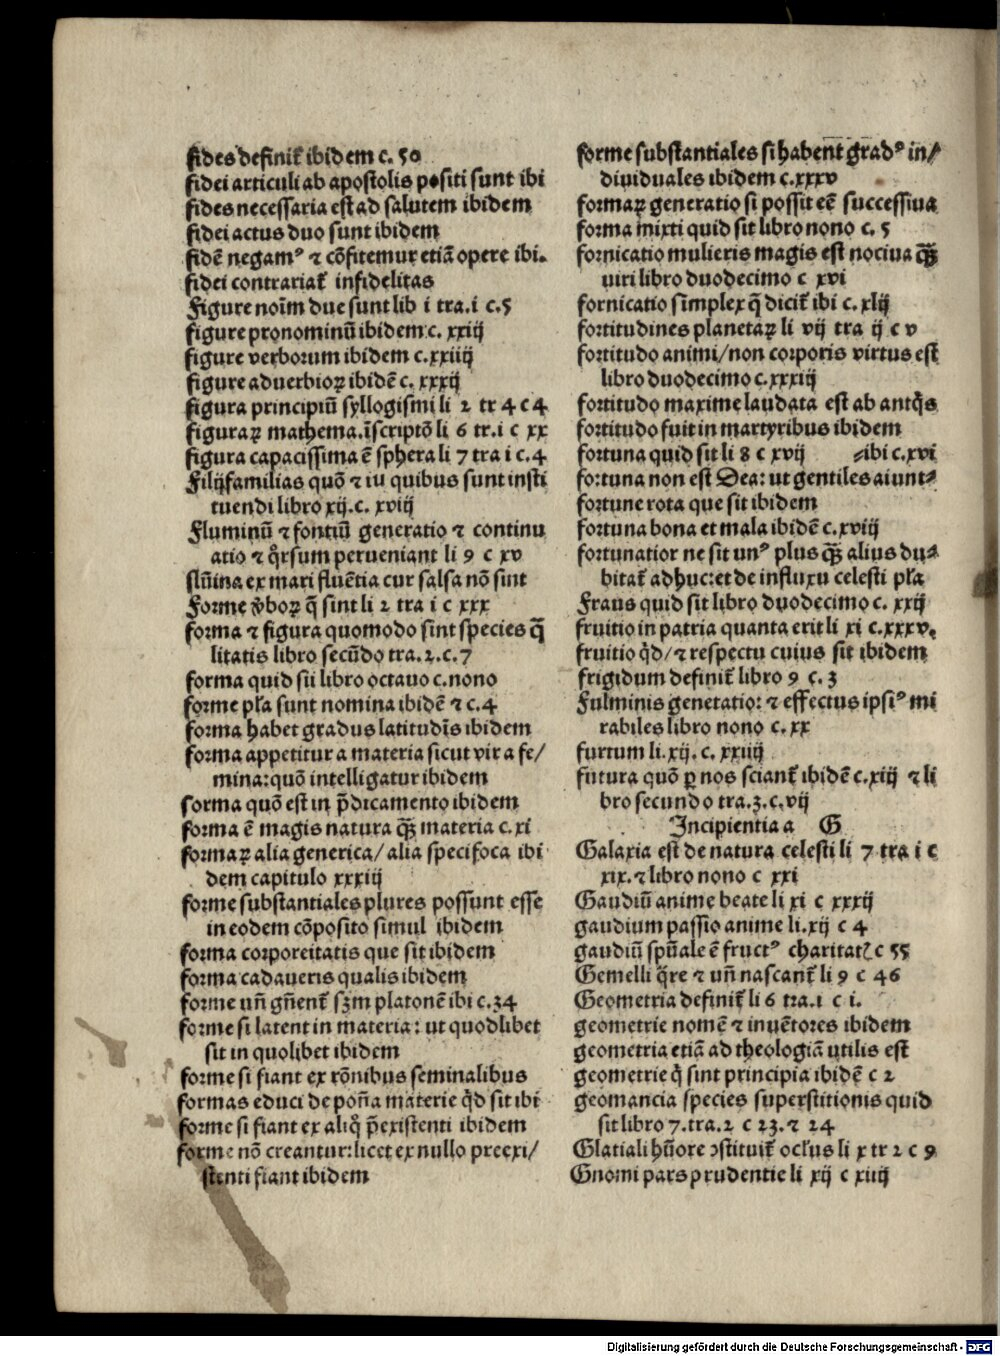 fides definit᷑ ibidem c. 50
fidei articuli ab apostolis positi sunt ibi
fides necessaria est ad salutem ibidem
fidei actus duo sunt ibidem
fidē negamꝰ ⁊ cōfitemur etiā opere ibi.
fidei contrariat᷑ infidelitas
Figure noīm due sunt lib i tra.i c.5
figure pronominū ibidem c. xxiij
figure verborum ibidem c.xxiiij
figure aduerbioꝝ ibidē c. xxxij
figura principiū syllogismi li 2 tr 4 c 4
figuraꝝ mathema.īscriptō li 6 tr.i c xx
figura capacissima ē sphera li 7 tra i c.4
Filijfamilias quō ⁊ iu quibus sunt insti
tuendi libro xij.c. xviij
Fluminū ⁊ fontiū generatio ⁊ continu
atio ⁊ q̊rsum perueniant li 9 c xv
flūina ex mari fluētia cur salsa nō sint
Forme v̓boꝝ q̄ sint li 2 tra i c xxx
forma ⁊ figura quomodo sint species q̄
litatis libro secūdo tra.2.c.7
forma quid sii libro octauo c.nono
forme pl̃a sunt nomina ibidē ⁊ c.4
forma habet gradus latitudīs ibidem
forma appetitur a materia sicut vir a fe/
mina:quō intelligatur ibidem
forma quō est in p̄dicamento ibidem
forma ē magis natura qꝫ̄ materia c.xi
formaꝝ alia generica/ alia specifoca ibi
dem capitulo xxxiij
forme substantiales plures possunt esse
in eodem cōposito simul ibidem
forma corporeitatis que sit ibidem
forma cadaueris qualis ibidem
forme un̄ gn̄ent᷑ sꝫm platonē ibi c.34
forme si latent in materia: ut quodlibet
sit in quolibet ibidem
forme si fiant ex rōnibus seminalibus
formas educi de pon̄a materie q̇d sit ibi
forme si fiant ex aliq̊ p̄existenti ibidem
forme nō creantur:licet ex nullo preexi/
stenti fiant ibidem
forme substantiales si habent gradꝰ in/
diuiduales ibidem c.xxxv
formaꝝ generatio si possit eē successiua
forma mixti quid sit libro nono c. 5
fornicatio mulieris magis est nociua qꝫ̄
uiri libro duodecimo c xvi
fornicatio simplex q̄ dicit᷑ ibi c. xlij
fortitudines planetaꝝ li vij tra ij c v
fortitudo animi/non corporis virtus est
libro duodecimo c.xxxiij
fortitudo maxime laudata est ab antq̇s
fortitudo fuit in martyribus ibidem
fortuna quid sit li 8 c xvij ⸗ibi c.xvi
fortuna non est Dea: ut gentiles aiunt⸗
fortune rota que sit ibidem
fortuna bona et mala ibidē c.xviij
fortunatior ne sit unꝰ plus qꝫ̄ alius du⸗
bitat᷑ adhuc:et de influxu celesti pl̃a
Fraus quid sit libro duodecimo c. xxij
fruitio in patria quanta erit li xi c.xxxv.
fruitio q̇d/⁊ respectu cuius sit ibidem
frigidum definit᷑ libro 9 c.3
Fulminis genetatio: ⁊ effectus ipsiꝰ mi
rabiles libro nono c. xx
furtum li.xij. c. xxiiij
futura quō ꝑ nos sciant᷑ ibidē c.xiij ⁊ li
bro secundo tra.3.c.vij
Incipientia a G
Galaxia est de natura celesti li 7 tra i c
xix.⁊ libro nono c xxi
Gaudiū anime beate li xi c xxxij
gaudium passio anime li.xij c 4
gaudiū spūale ē fructꝰ charitat� c 55
Gemelli q̄re ⁊ un̄ nascant᷑ li 9 c 46
Geometria definit᷑ li 6 tra.i c i.
geometrie nomē ⁊ inuētores ibidem
geometria etiā ad theologiā utilis est
geometrie q̇ sint principia ibidē c 2
geomancia species superstitionis quid
sit libro 7.tra.2 c 23.⁊ 24
Glatiali hūore ꝯstituit᷑ ocl̕us li x tr 2 c 9
Gnomi pars prudentie li xij c xiiij
Digitalisierung gefördert durch die Deutsche Forschungsgemeinschaft - DFG